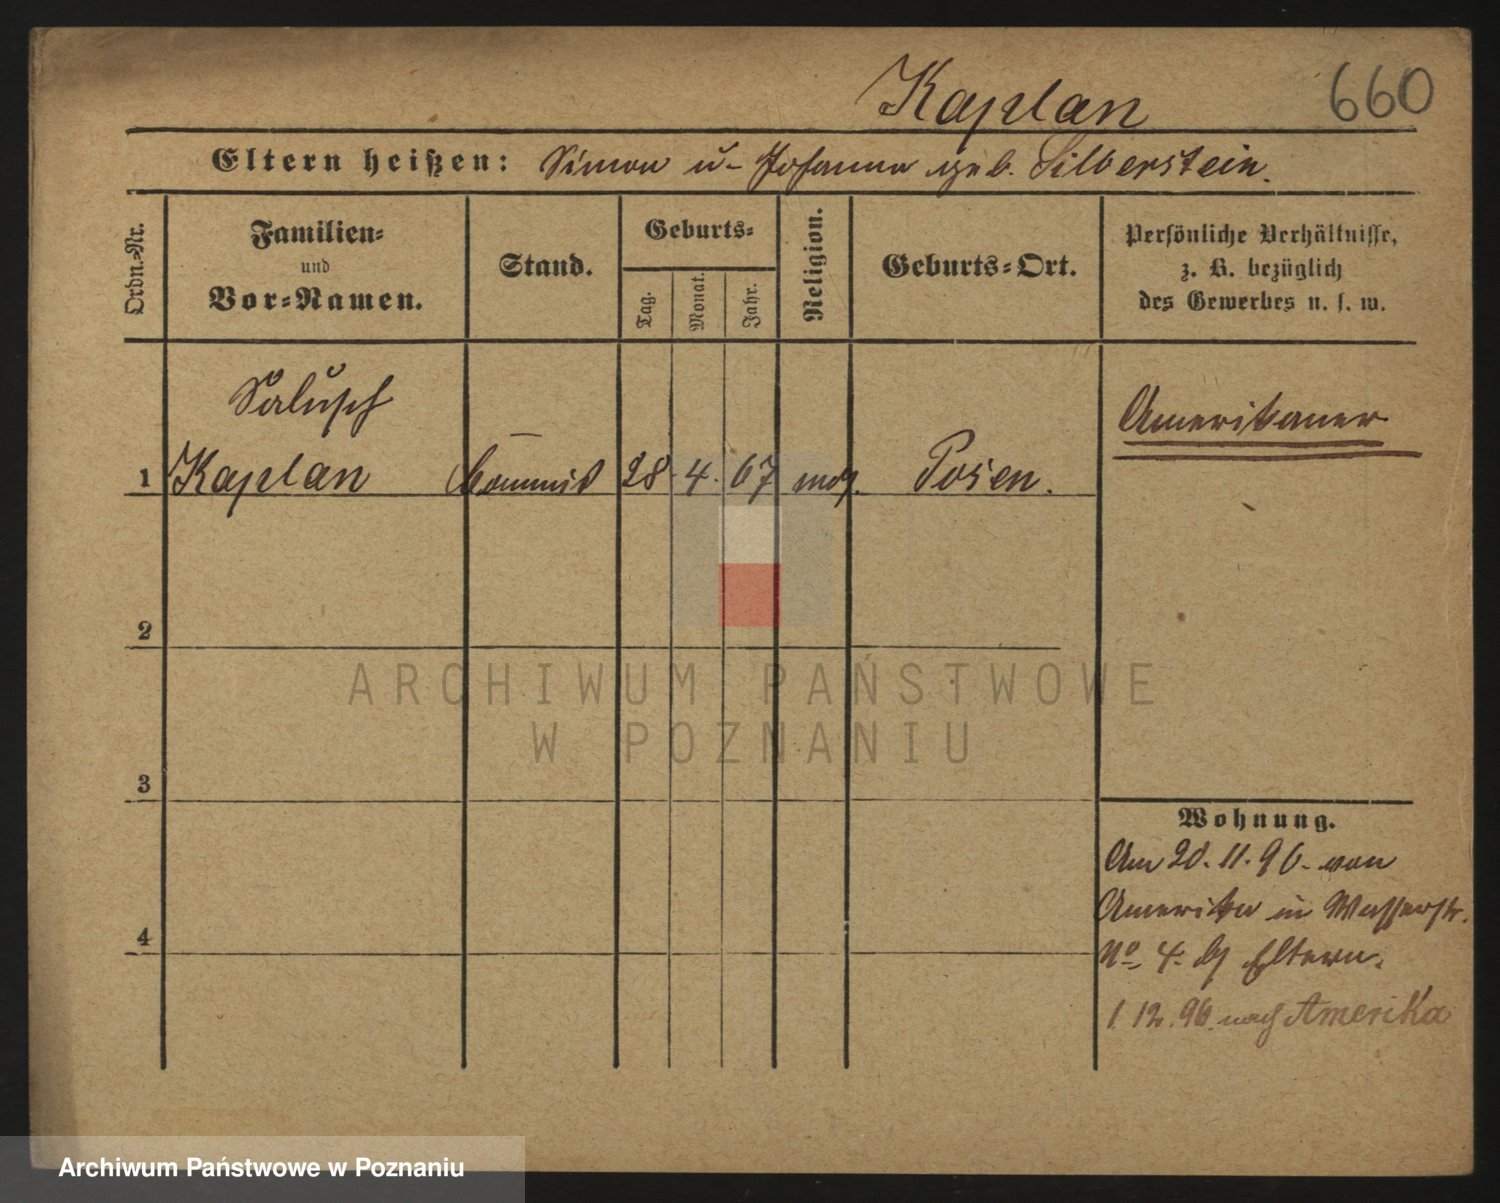 Kaplan 660
Eltern heißen: Simon u. Johanna geb. Silberstein.
Ordn.-Nr.
Familien-
und
Vor-Namen.
Stand.
Geburts-
Tag.
Monat.
Jahr.
Religion.
Geburts-Ort.
Persönliche Verhältnisse,
z. B. bezüglich
des Gewerbes u. s. w.
Salusch
1 Kaplan Commis 28. 4. 67 mos. Posen.
Amerikaner
2
3
4
Wohnung.
Am 28. 11. 96. von
Amerika in Wasserstr.
No. 4. Eltern.
1. 12. 96. nach Amerika
ARCHIWUM PAŃSTWOWE
W POZNANIU
Archiwum Państwowe w Poznaniu